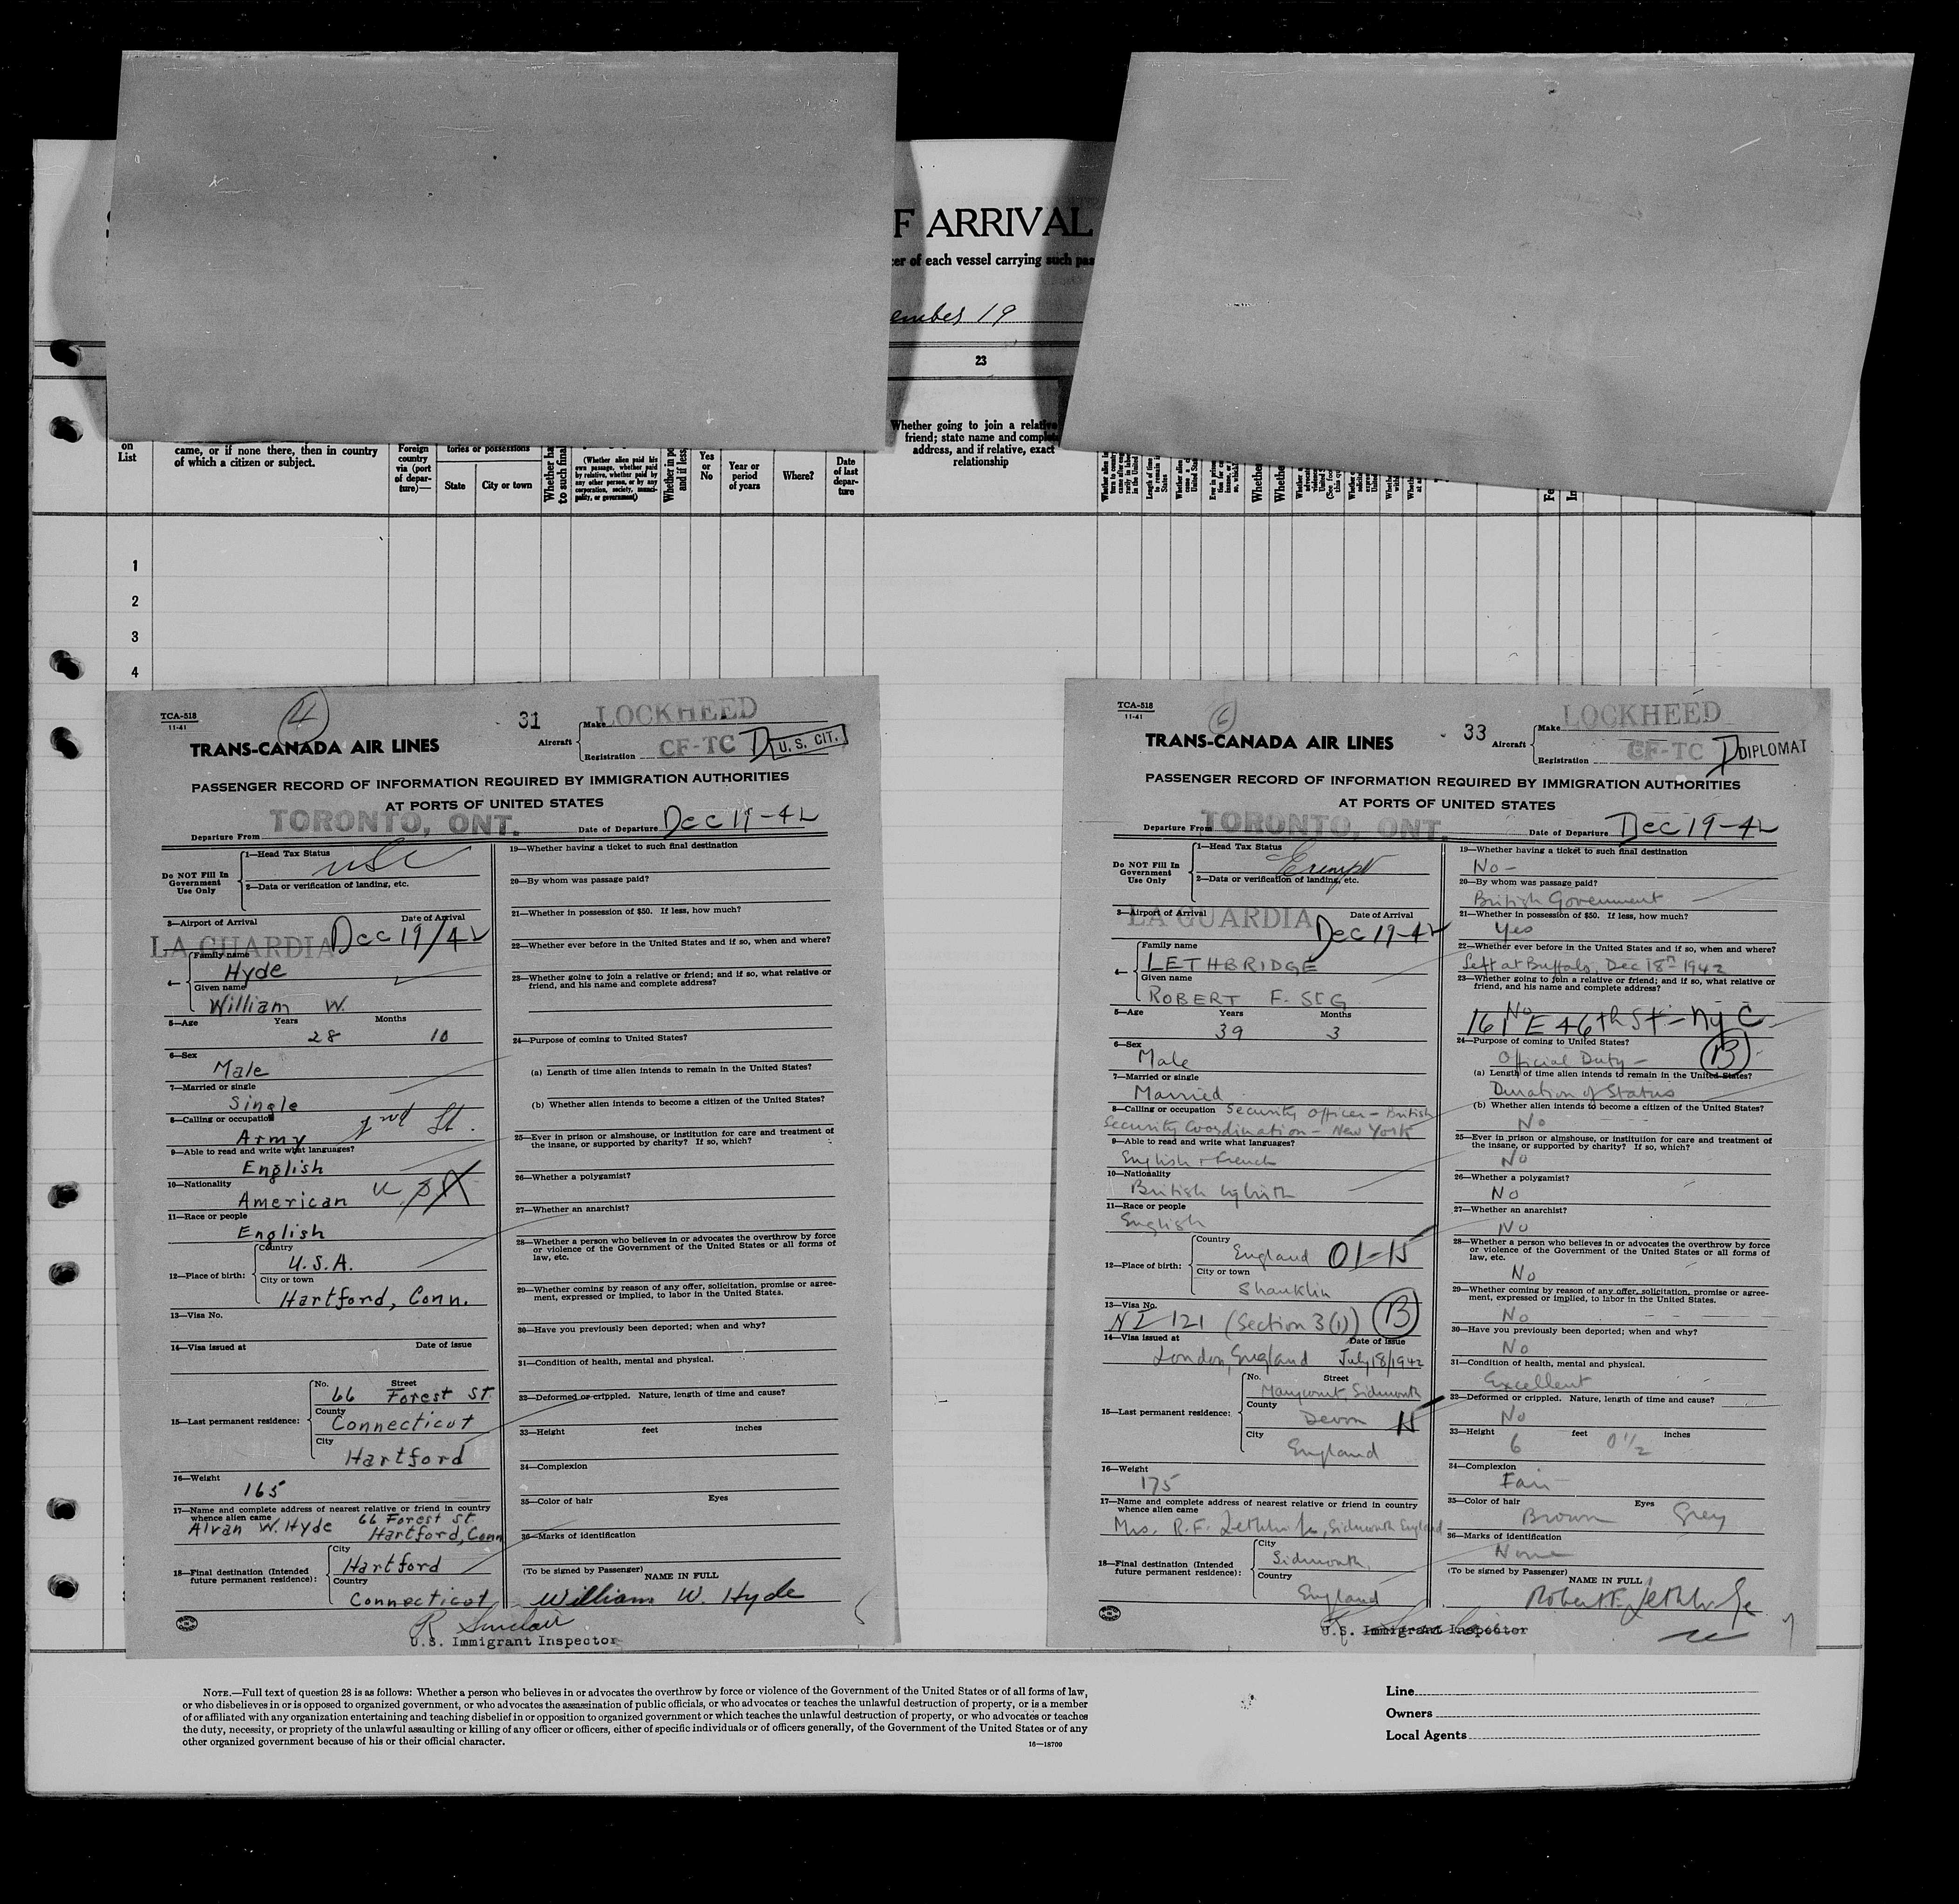 F ARRIVAL
cer of each vessel carrying such pas
ember 19
23
on
List
came, or if none there, then in country
of which a citizen or subject.
Foreign
country
via (port
of depar-
ture)—
tories or possessions
State
City or town
Whether ha
to such final
(Whether alien paid his
own passage, whether paid
by relative, whether paid by
any other person, or by any
corporation, society, munici-
pality, or government)
Whether in po
and if less,
Yes
or
No
Year or
period
of years
Where?
Date
of last
depar-
ture
Whether going to join a relative
friend; state name and complete
address, and if relative, exact
relationship
1
2
3
4
TCA-518
11-41
4
31
TRANS-CANADA AIR LINES
Aircraft
Make LOCKHEED
Registration CF-TC D
U.S. CIT.
PASSENGER RECORD OF INFORMATION REQUIRED BY IMMIGRATION AUTHORITIES
AT PORTS OF UNITED STATES
Departure From TORONTO, ONT.
Date of Departure Dec 19-42
Do NOT Fill In
Government
Use Only
1—Head Tax Status
USC
2—Data or verification of landing, etc.
3—Airport of Arrival
Date of Arrival
LA GUARDIA Dec 19/42
4—
Family name
Hyde
Given name
William W.
5—Age
Years
Months
28 10
6—Sex
Male
7—Married or single
Single
8—Calling or occupation
Army 2nd Lt.
9—Able to read and write what languages?
English
10—Nationality
American
11—Race or people
English
12—Place of birth:
Country
U.S.A.
City or town
Hartford, Conn.
13—Visa No.
14—Visa issued at
Date of issue
15—Last permanent residence:
No.
Street
66 Forest St.
County
Connecticut
City
Hartford
16—Weight
165
17—Name and complete address of nearest relative or friend in country
whence alien came
66 Forest St.
Alvan W. Hyde Hartford, Conn
18—Final destination (Intended
future permanent residence):
City
Hartford
Country
Connecticut
19—Whether having a ticket to such final destination
20—By whom was passage paid?
21—Whether in possession of $50. If less, how much?
22—Whether ever before in the United States and if so, when and where?
23—Whether going to join a relative or friend; and if so, what relative or
friend, and his name and complete address?
24—Purpose of coming to United States?
(a) Length of time alien intends to remain in the United States?
(b) Whether alien intends to become a citizen of the United States?
25—Ever in prison or almshouse, or institution for care and treatment of
the insane, or supported by charity? If so, which?
26—Whether a polygamist?
27—Whether an anarchist?
28—Whether a person who believes in or advocates the overthrow by force
or violence of the Government of the United States or all forms of
law, etc.
29—Whether coming by reason of any offer, solicitation, promise or agree-
ment, expressed or implied, to labor in the United States.
30—Have you previously been deported; when and why?
31—Condition of health, mental and physical.
32—Deformed or crippled. Nature, length of time and cause?
33—Height
feet
inches
34—Complexion
35—Color of hair
Eyes
36—Marks of identification
(To be signed by Passenger)
NAME IN FULL
William W. Hyde
R Sinclair
U.S. Immigrant Inspector
TCA-518
11-41
6
33
TRANS-CANADA AIR LINES
Aircraft
Make LOCKHEED
Registration CF-TC D
DIPLOMAT
PASSENGER RECORD OF INFORMATION REQUIRED BY IMMIGRATION AUTHORITIES
AT PORTS OF UNITED STATES
Departure From TORONTO, ONT.
Date of Departure Dec 19-42
Do NOT Fill In
Government
Use Only
1—Head Tax Status
Exempt
2—Data or verification of landing, etc.
3—Airport of Arrival
Date of Arrival
LA GUARDIA Dec 19-42
4—
Family name
LETHBRIDGE
Given name
ROBERT F. St G
5—Age
Years
Months
39 3
6—Sex
Male
7—Married or single
Married
8—Calling or occupation Security Officer - British
Security Coordination - New York
9—Able to read and write what languages?
English + French
10—Nationality
British by birth
11—Race or people
English
12—Place of birth:
Country
England 01-H
City or town
Shanklin
13—Visa No.
NI 121 (Section 3(1)) B
14—Visa issued at
Date of issue
London, England July 18/1942
15—Last permanent residence:
No.
Street
Sidmouth
County
Devon H
City
England
16—Weight
175
17—Name and complete address of nearest relative or friend in country
whence alien came
Mrs. R.F. Lethbridge, Sidmouth England
18—Final destination (Intended
future permanent residence):
City
Sidmouth
Country
England
19—Whether having a ticket to such final destination
No -
20—By whom was passage paid?
British Government
21—Whether in possession of $50. If less, how much?
Yes
22—Whether ever before in the United States and if so, when and where?
Left at Buffalo, Dec 18th 1942
23—Whether going to join a relative or friend; and if so, what relative or
friend, and his name and complete address?
No
161 E 46th St - NYC
24—Purpose of coming to United States?
Official Duty - B
(a) Length of time alien intends to remain in the United States?
Duration of Status
(b) Whether alien intends to become a citizen of the United States?
No
25—Ever in prison or almshouse, or institution for care and treatment of
the insane, or supported by charity? If so, which?
No
26—Whether a polygamist?
No
27—Whether an anarchist?
No
28—Whether a person who believes in or advocates the overthrow by force
or violence of the Government of the United States or all forms of
law, etc.
No
29—Whether coming by reason of any offer, solicitation, promise or agree-
ment, expressed or implied, to labor in the United States.
No
30—Have you previously been deported; when and why?
No
31—Condition of health, mental and physical.
Excellent
32—Deformed or crippled. Nature, length of time and cause?
No
33—Height
feet
inches
6 0 1/2
34—Complexion
Fair
35—Color of hair
Eyes
Brown Grey
36—Marks of identification
None
(To be signed by Passenger)
NAME IN FULL
Robert F. Lethbridge
U.S. Immigrant Inspector
NOTE.—Full text of question 28 is as follows: Whether a person who believes in or advocates the overthrow by force or violence of the Government of the United States or of all forms of law,
or who disbelieves in or is opposed to organized government, or who advocates the assassination of public officials, or who advocates or teaches the unlawful destruction of property, or is a member
of or affiliated with any organization entertaining and teaching disbelief in or opposition to organized government or which teaches the unlawful destruction of property, or who advocates or teaches
the duty, necessity, or propriety of the unlawful assaulting or killing of any officer or officers, either of specific individuals or of officers generally, of the Government of the United States or of any
other organized government because of his or their official character.
16—18709
Line
Owners
Local Agents